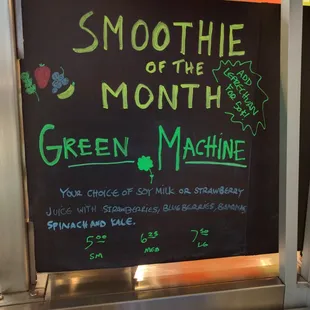 SMOOTHIE
OF THE
MONTH
ADD
LEPRECHAUN
FOR
50¢!
GREEN MACHINE
YOUR CHOICE OF SOY MILK OR STRAWBERRY
JUICE WITH STRAWBERRIES, BLUEBERRIES, BANANA,
SPINACH AND KALE.
5.00 6.25 7.50
SM MED LG